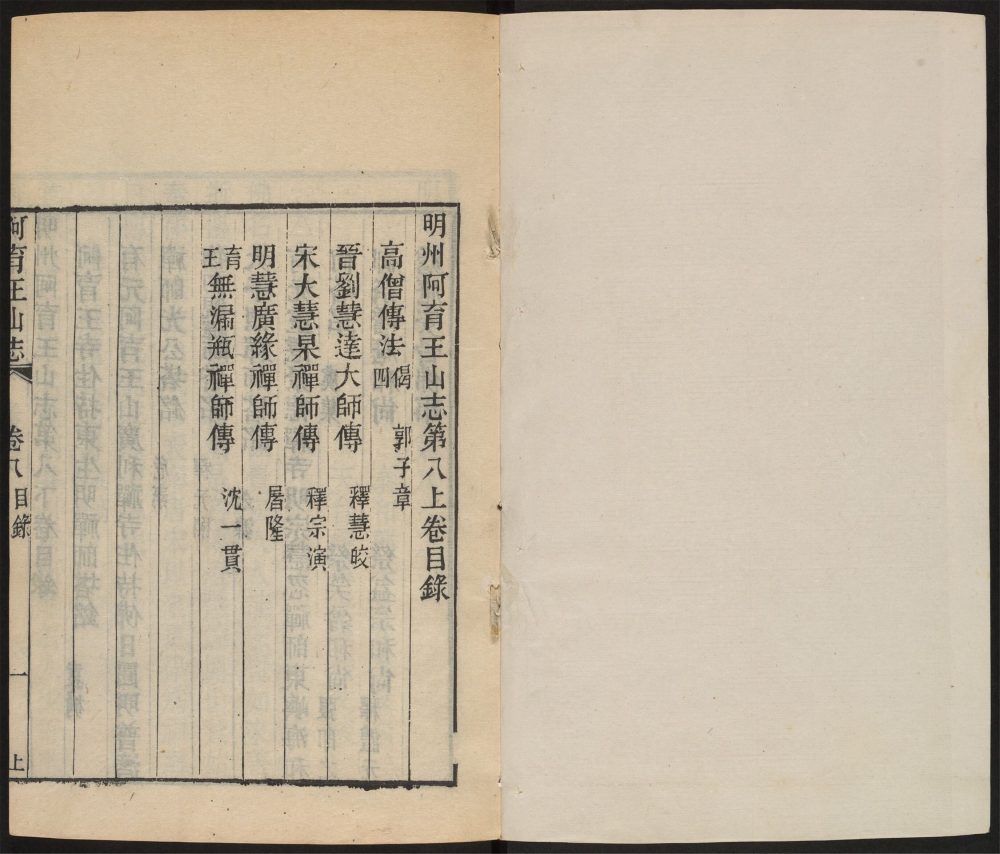 明州阿育王山志第八上卷目錄
高僧傳法四偈 郭子章
晉劉慧達大師傳 釋慧皎
宋大慧杲禪師傳 釋宗演
明慧廣緣禪師傳 屠隆
育王無漏瓶禪師傳 沈一貫
阿育王山志 卷八目錄 一 上